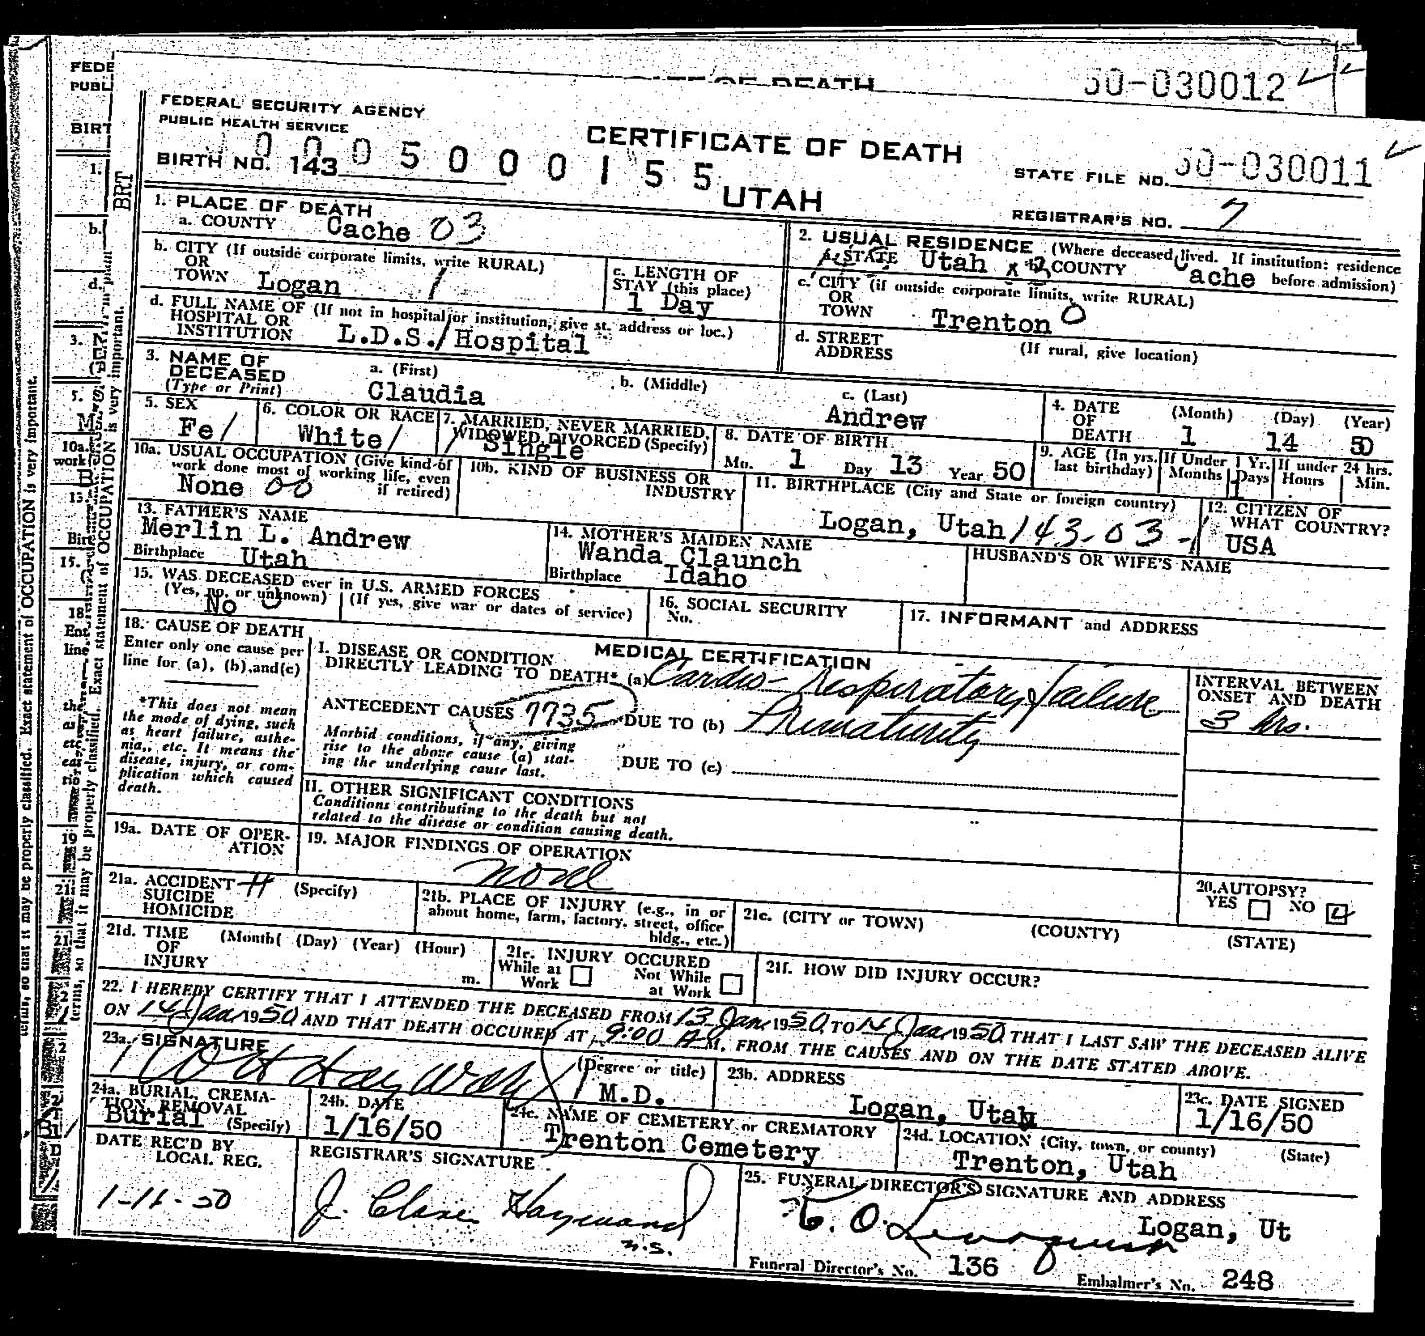 FEDE
PUBL
BIRT
OF DEATH
50-030012
FEDERAL SECURITY AGENCY
PUBLIC HEALTH SERVICE
CERTIFICATE OF DEATH
STATE FILE NO. 50-030011
BIRTH NO. 143
0005000155
UTAH
REGISTRAR'S NO. 7
1. PLACE OF DEATH
a. COUNTY Cache 03
2. USUAL RESIDENCE (Where deceased lived. If institution: residence before admission)
a. STATE Utah b. COUNTY Cache
b. CITY (If outside corporate limits, write RURAL)
OR
TOWN Logan 1
c. LENGTH OF
STAY (this place)
1 Day
c. CITY (if outside corporate limits, write RURAL)
OR
TOWN Trenton 0
d. FULL NAME OF (If not in hospital or institution, give st. address or loc.)
HOSPITAL OR
INSTITUTION L.D.S. Hospital
d. STREET
ADDRESS
(If rural, give location)
3. NAME OF
DECEASED
(Type or Print)
a. (First)
Claudia
b. (Middle)
c. (Last)
Andrew
4. DATE
OF
DEATH
(Month) (Day) (Year)
1 14 50
5. SEX
Fe
6. COLOR OR RACE
White
7. MARRIED, NEVER MARRIED,
WIDOWED, DIVORCED (Specify)
Single
8. DATE OF BIRTH
Mo. 1 Day 13 Year 50
9. AGE (In yrs.
last birthday)
If Under 1 Yr.
Months Days
1
If under 24 hrs.
Hours Min.
10a. USUAL OCCUPATION (Give kind of
work done most of working life, even
if retired)
None 00
10b. KIND OF BUSINESS OR
INDUSTRY
11. BIRTHPLACE (City and State or foreign country)
Logan, Utah 143-03-1
12. CITIZEN OF
WHAT COUNTRY?
USA
13. FATHER'S NAME
Merlin L. Andrew
Birthplace Utah
14. MOTHER'S MAIDEN NAME
Wanda Claunch
Birthplace Idaho
HUSBAND'S OR WIFE'S NAME
15. WAS DECEASED ever in U.S. ARMED FORCES
(Yes, no, or unknown) (If yes, give war or dates of service)
No
16. SOCIAL SECURITY
No.
17. INFORMANT and ADDRESS
18. CAUSE OF DEATH
Enter only one cause per
line for (a), (b), and (c)
MEDICAL CERTIFICATION
I. DISEASE OR CONDITION
DIRECTLY LEADING TO DEATH* (a) Cardio-respiratory failure
INTERVAL BETWEEN
ONSET AND DEATH
3 hrs.
ANTECEDENT CAUSES 7735 DUE TO (b) Prematurity
Morbid conditions, if any, giving
rise to the above cause (a) stat-
ing the underlying cause last.
DUE TO (c)
*This does not mean
the mode of dying, such
as heart failure, asthe-
nia,, etc. It means the
disease, injury, or com-
plication which caused
death.
II. OTHER SIGNIFICANT CONDITIONS
Conditions contributing to the death but not
related to the disease or condition causing death.
19a. DATE OF OPER-
ATION
19. MAJOR FINDINGS OF OPERATION
none
20. AUTOPSY?
YES NO
21a. ACCIDENT (Specify)
SUICIDE
HOMICIDE
21b. PLACE OF INJURY (e.g., in or
about home, farm, factory, street, office
bldg., etc.)
21c. (CITY or TOWN) (COUNTY) (STATE)
21d. TIME (Month( (Day) (Year) (Hour)
OF
INJURY m.
21e. INJURY OCCURED
While at
Work
Not While
at Work
21f. HOW DID INJURY OCCUR?
22. I HEREBY CERTIFY THAT I ATTENDED THE DECEASED FROM 13 Jan 1950, TO 14 Jan 1950 THAT I LAST SAW THE DECEASED ALIVE
ON 14 Jan 1950 AND THAT DEATH OCCURED AT 9:00 A.M. FROM THE CAUSES AND ON THE DATE STATED ABOVE.
23a. SIGNATURE
Hayward
(Degree or title)
M.D.
23b. ADDRESS
Logan, Utah
23c. DATE SIGNED
1/16/50
24a. BURIAL, CREMA-
TION, REMOVAL
Burial (Specify)
24b. DATE
1/16/50
24c. NAME OF CEMETERY or CREMATORY
Trenton Cemetery
24d. LOCATION (City, town, or county) (State)
Trenton, Utah
DATE REC'D BY
LOCAL REG.
1-16-50
REGISTRAR'S SIGNATURE
J. Clare Hayward
25. FUNERAL DIRECTOR'S SIGNATURE AND ADDRESS
Logan, Ut
Funeral Director's No. 136
Embalmer's No. 248
terms, so that it may be properly classified. Exact statement of OCCUPATION is very important.